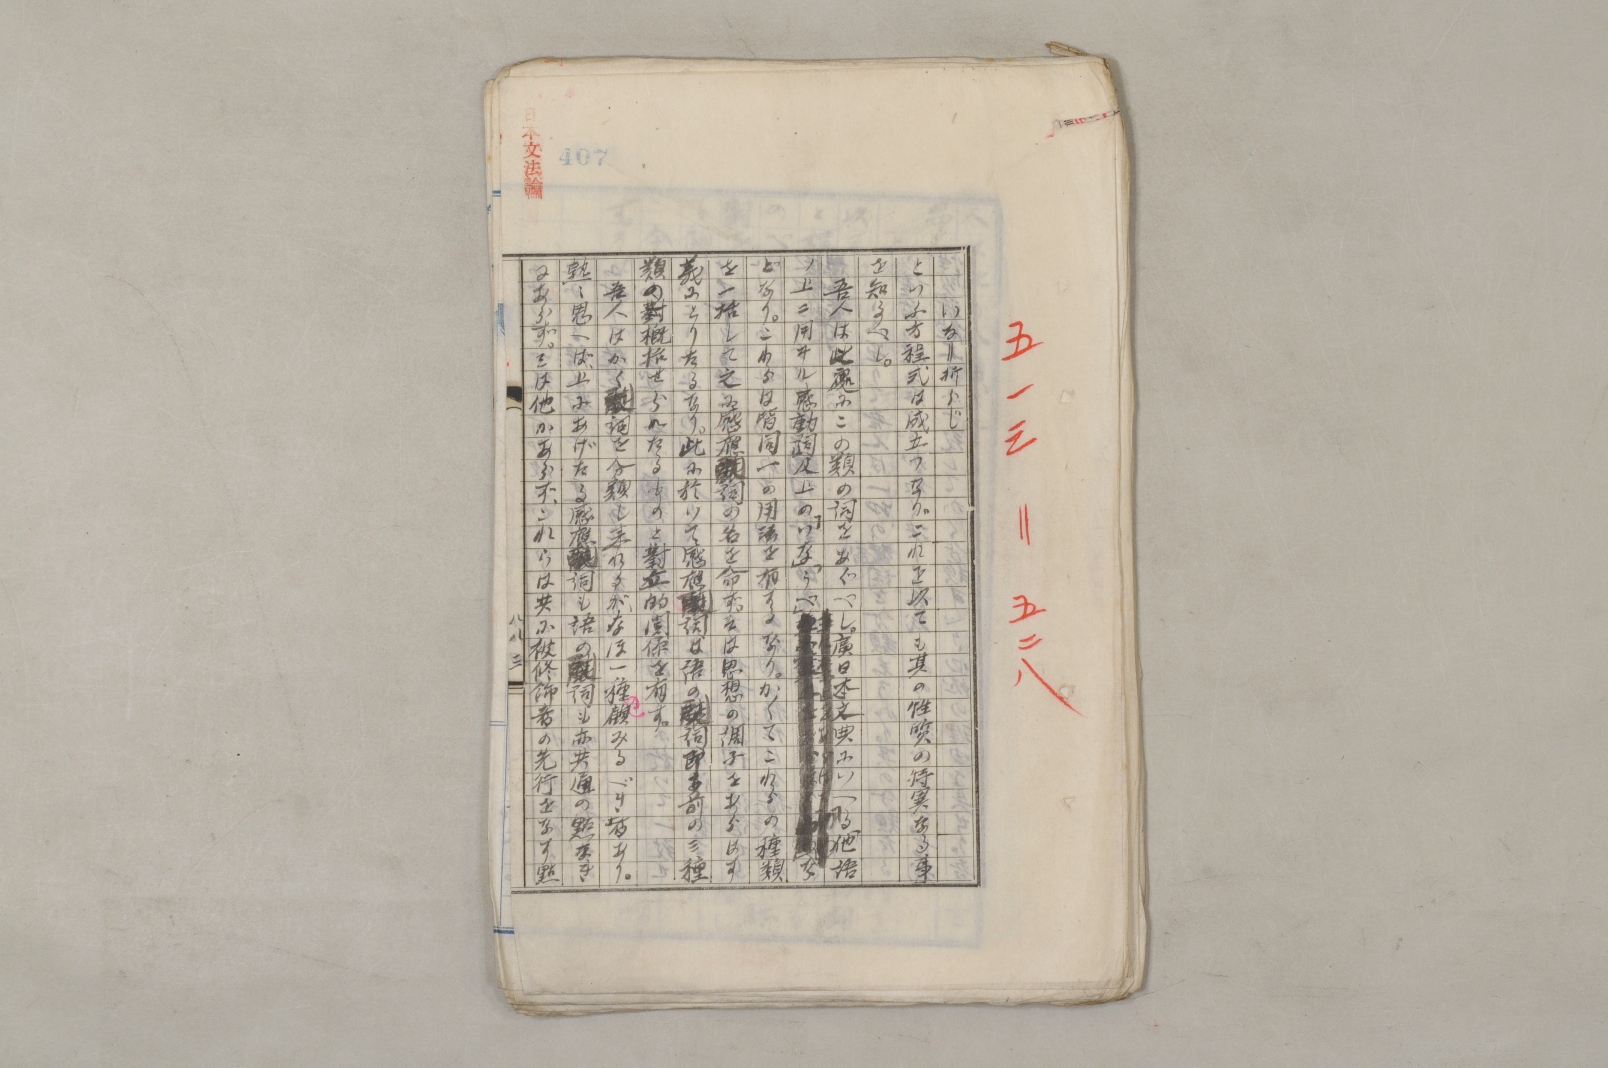 五一三＝五二八
日本文法論
407
いな＝折ふじ
といふ方程式は成立つなり。これを以ても其の性質の特異なる事
を知るべし。
吾人は此處にこの類の詞をあぐべし。廣日本文典にいへる「他語
ノ上ニ用ヰル感動詞及上の「いな」「うべ」
どなり。これらは皆同一の用法を有するなり。かくてこれらの種類
を一括して之に感應詞の名を命ず。そは思想の調子をあらはす
義にとりたるなり。此に於いて感應詞は語の詞即ち前の三種
類の對概括せられたるものと對立的關係を有す。
吾人はかく詞を分類し來れるが、なほ一種顧みるべき者あり。
熟〻思へば、上にあげたる感應詞も語の詞も亦共通の點なき
にあらず。そは他にあらず、これらは共に被修飾者の先行をなす點
八八三